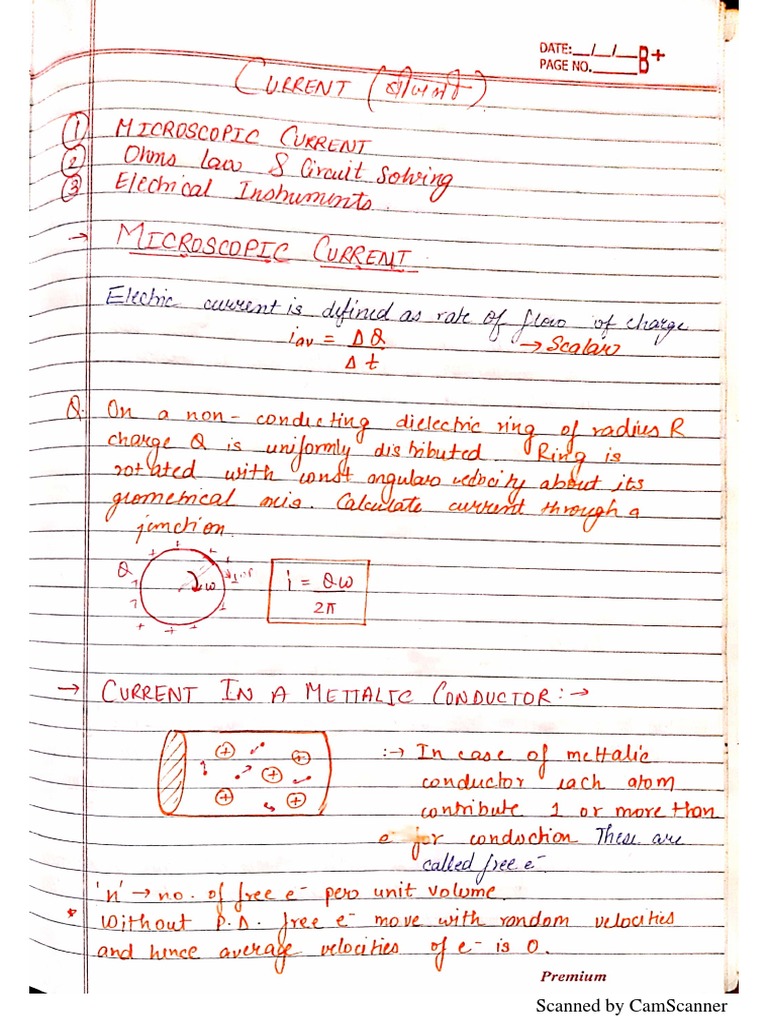 DATE:__/__/__
PAGE NO.______
B+
CURRENT (
① MICROSCOPIC CURRENT
② Ohms law & Circuit Solving
③ Electrical Instruments.
→ MICROSCOPIC CURRENT.
Electric current is defined as rate of flow of charge
i av = ΔQ / Δt → Scalar
Q. On a non-conducting dielectric ring of radius R
charge Q is uniformly distributed. Ring is
rotated with const angular velocity about its
geometrical axis. Calculate current through a
junction.
Q ω i = Qω / 2π
→ CURRENT IN A METTALIC CONDUCTOR:→
:→ In case of mettalic
conductor each atom
contribute 1 or more than
e⁻ for conduction These are
called free e⁻
'n' → no. of free e⁻ per unit volume.
* Without P.D. free e⁻ move with random velocities
and hence average velocities of e⁻ is 0.
Premium
Scanned by CamScanner